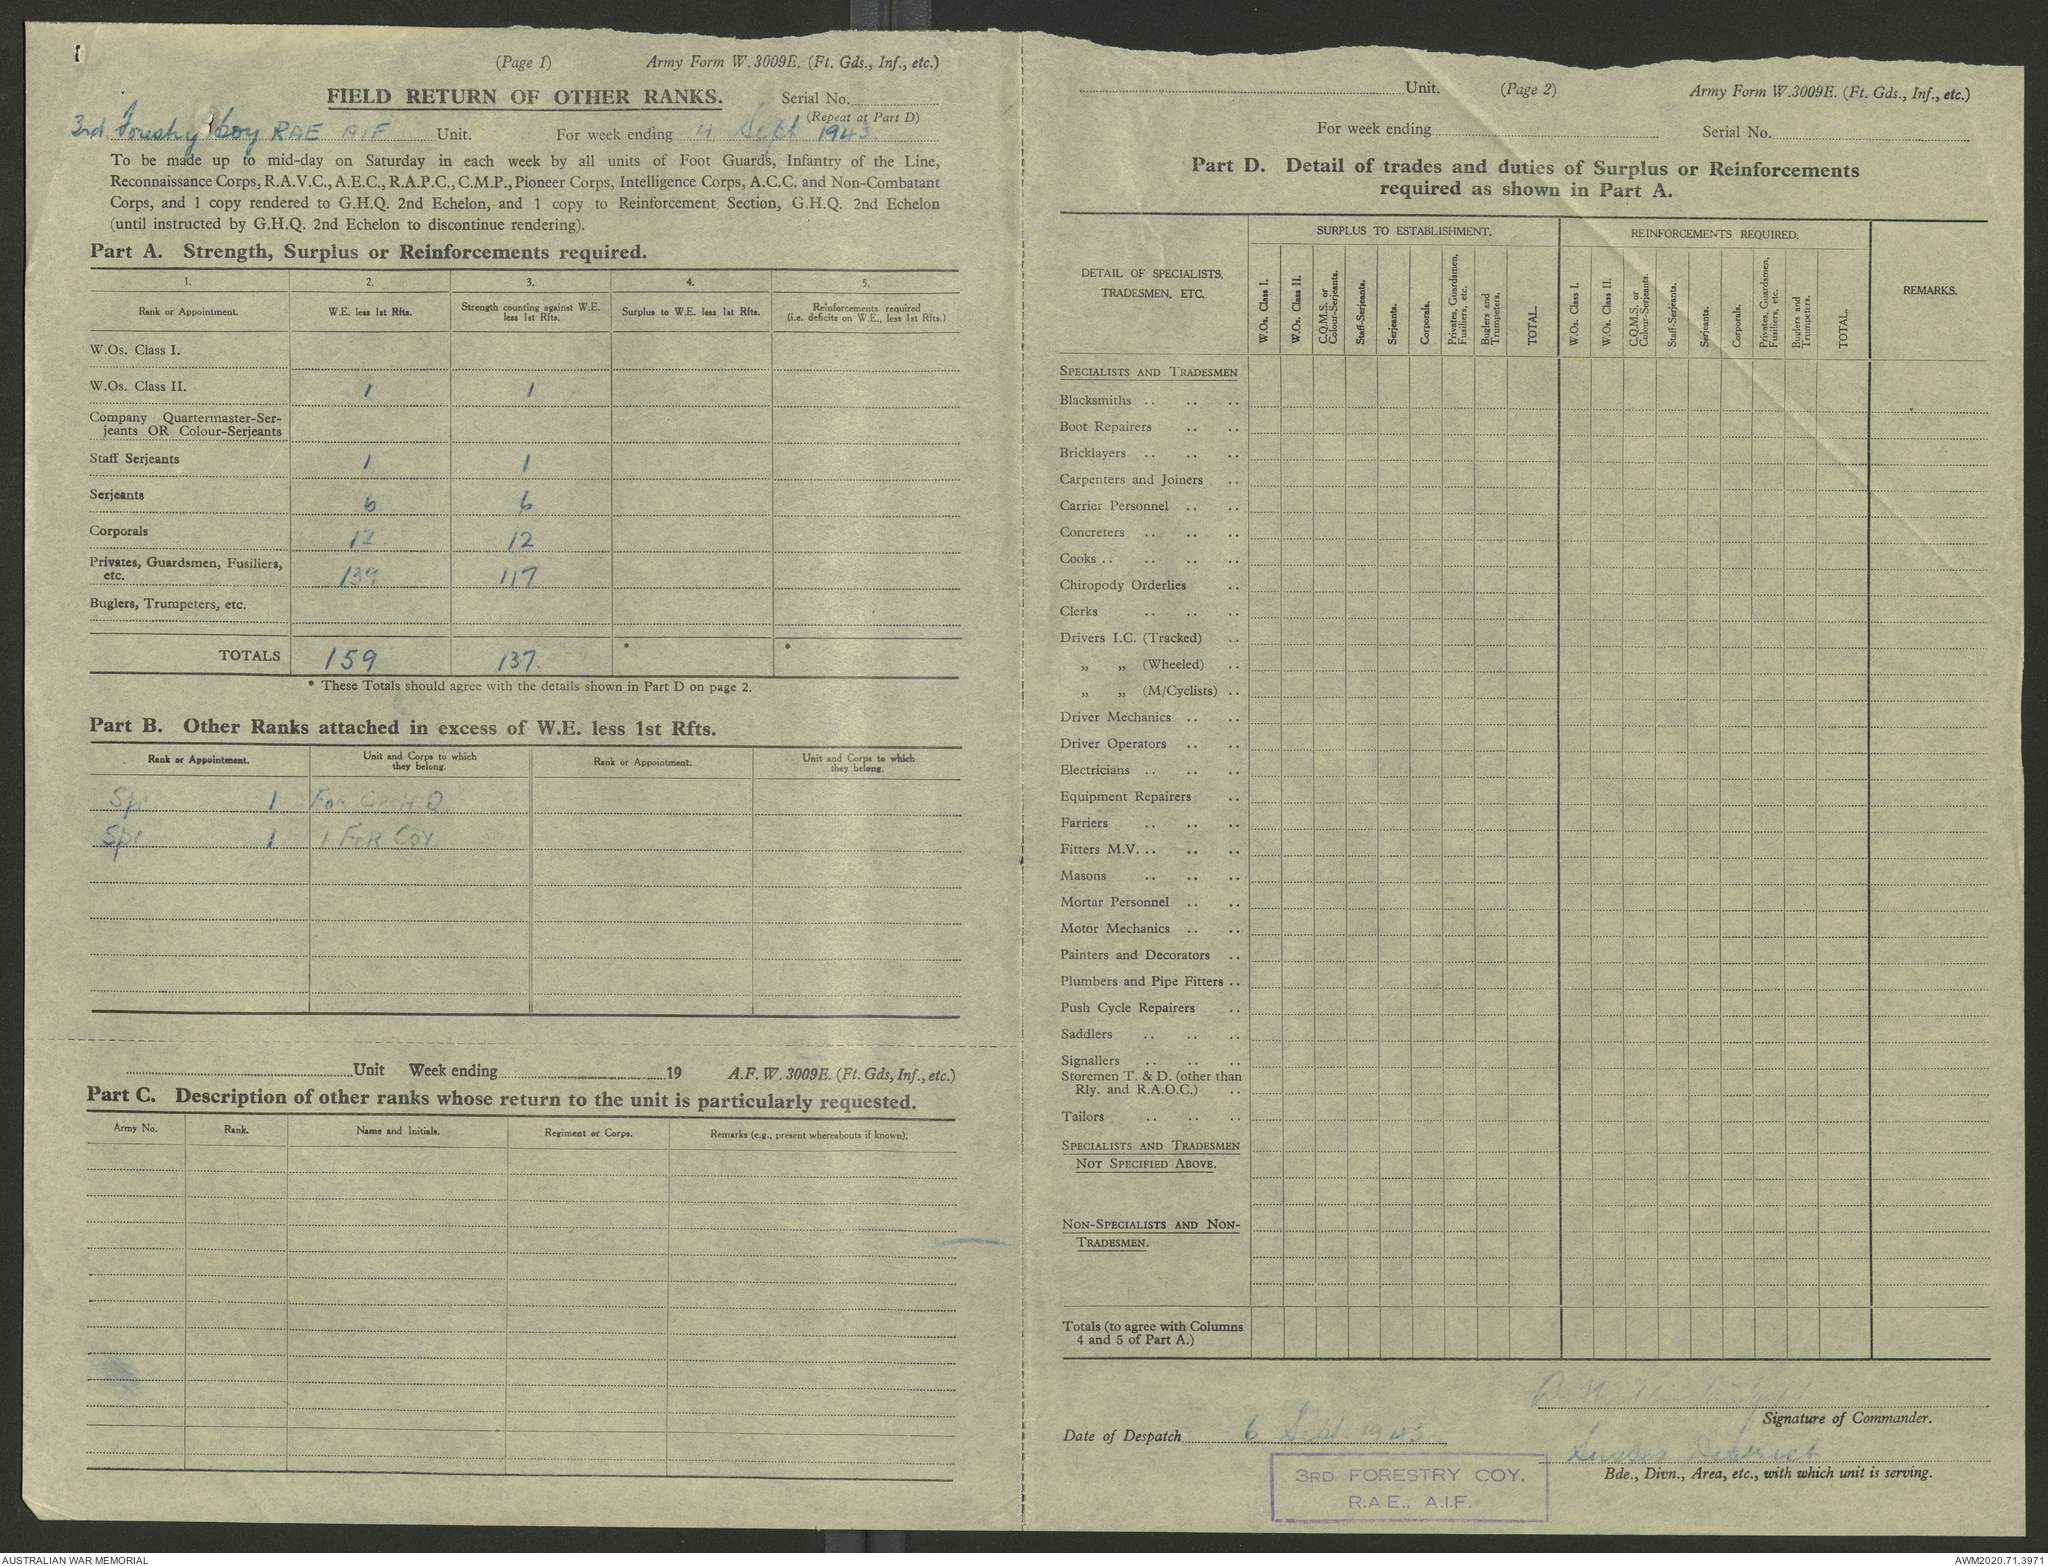 (Page 1) Army Form W.3009E. (Ft. Gds., Inf., etc.)
FIELD RETURN OF OTHER RANKS. Serial No.
(Repeat at Part D)
3rd Forestry Coy RAE AIF Unit. For week ending 4 Sept 1943.
To be made up to mid-day on Saturday in each week by all units of Foot Guards, Infantry of the Line,
Reconnaissance Corps, R.A.V.C., A.E.C., R.A.P.C., C.M.P., Pioneer Corps, Intelligence Corps, A.C.C. and Non-Combatant
Corps, and 1 copy rendered to G.H.Q. 2nd Echelon, and 1 copy to Reinforcement Section, G.H.Q. 2nd Echelon
(until instructed by G.H.Q. 2nd Echelon to discontinue rendering).
Part A. Strength, Surplus or Reinforcements required.
1. 2. 3. 4. 5.
Rank or Appointment. W.E. less 1st Rfts. Strength counting against W.E. less 1st Rfts. Surplus to W.E. less 1st Rfts. Reinforcements required (i.e. deficits on W.E., less 1st Rfts.)
W.Os. Class I.
W.Os. Class II. 1 1
Company Quartermaster-Ser-
jeants OR Colour-Serjeants
Staff Serjeants 1 1
Serjeants 6 6
Corporals 12 12
Privates, Guardsmen, Fusiliers,
etc. 139 117
Buglers, Trumpeters, etc.
TOTALS 159 137. * *
* These Totals should agree with the details shown in Part D on page 2.
Part B. Other Ranks attached in excess of W.E. less 1st Rfts.
Rank or Appointment. Unit and Corps to which they belong. Rank or Appointment. Unit and Corps to which they belong.
Spr 1 For Gp H.Q.
Spr 1 1 FOR COY
Unit Week ending 19 A.F. W. 3009E. (Ft. Gds, Inf., etc.)
Part C. Description of other ranks whose return to the unit is particularly requested.
Army No. Rank. Name and Initials. Regiment or Corps. Remarks (e.g., present whereabouts if known).
Unit. (Page 2) Army Form W.3009E. (Ft. Gds., Inf., etc.)
For week ending Serial No.
Part D. Detail of trades and duties of Surplus or Reinforcements
required as shown in Part A.
DETAIL OF SPECIALISTS, TRADESMEN, ETC. SURPLUS TO ESTABLISHMENT. REINFORCEMENTS REQUIRED. REMARKS.
W.Os. Class I. W.Os. Class II. C.Q.M.S. or Colour-Serjeants. Staff-Serjeants. Serjeants. Corporals. Privates, Guardsmen, Fusiliers, etc. Buglers and Trumpeters. TOTAL. W.Os. Class I. W.Os. Class II. C.Q.M.S. or Colour-Serjeants. Staff-Serjeants. Serjeants. Corporals. Privates, Guardsmen, Fusiliers, etc. Buglers and Trumpeters. TOTAL.
SPECIALISTS AND TRADESMEN
Blacksmiths .. .. ..
Boot Repairers .. ..
Bricklayers .. .. ..
Carpenters and Joiners ..
Carrier Personnel .. ..
Concreters .. .. ..
Cooks .. .. .. ..
Chiropody Orderlies ..
Clerks .. .. ..
Drivers I.C. (Tracked) ..
„ „ (Wheeled) ..
„ „ (M/Cyclists) ..
Driver Mechanics .. ..
Driver Operators .. ..
Electricians .. .. ..
Equipment Repairers ..
Farriers .. .. ..
Fitters M.V. .. .. ..
Masons .. .. ..
Mortar Personnel .. ..
Motor Mechanics .. ..
Painters and Decorators ..
Plumbers and Pipe Fitters ..
Push Cycle Repairers ..
Saddlers .. .. ..
Signallers .. .. ..
Storemen T. & D. (other than
Rly. and R.A.O.C.) ..
Tailors .. .. ..
SPECIALISTS AND TRADESMEN
NOT SPECIFIED ABOVE.
NON-SPECIALISTS AND NON-
TRADESMEN.
Totals (to agree with Columns
4 and 5 of Part A.)
Signature of Commander.
Date of Despatch 6 Sept 1943
District
Bde., Divn., Area, etc., with which unit is serving.
3RD FORESTRY COY.
R.A.E., A.I.F.
AUSTRALIAN WAR MEMORIAL AWM2020.71.3971